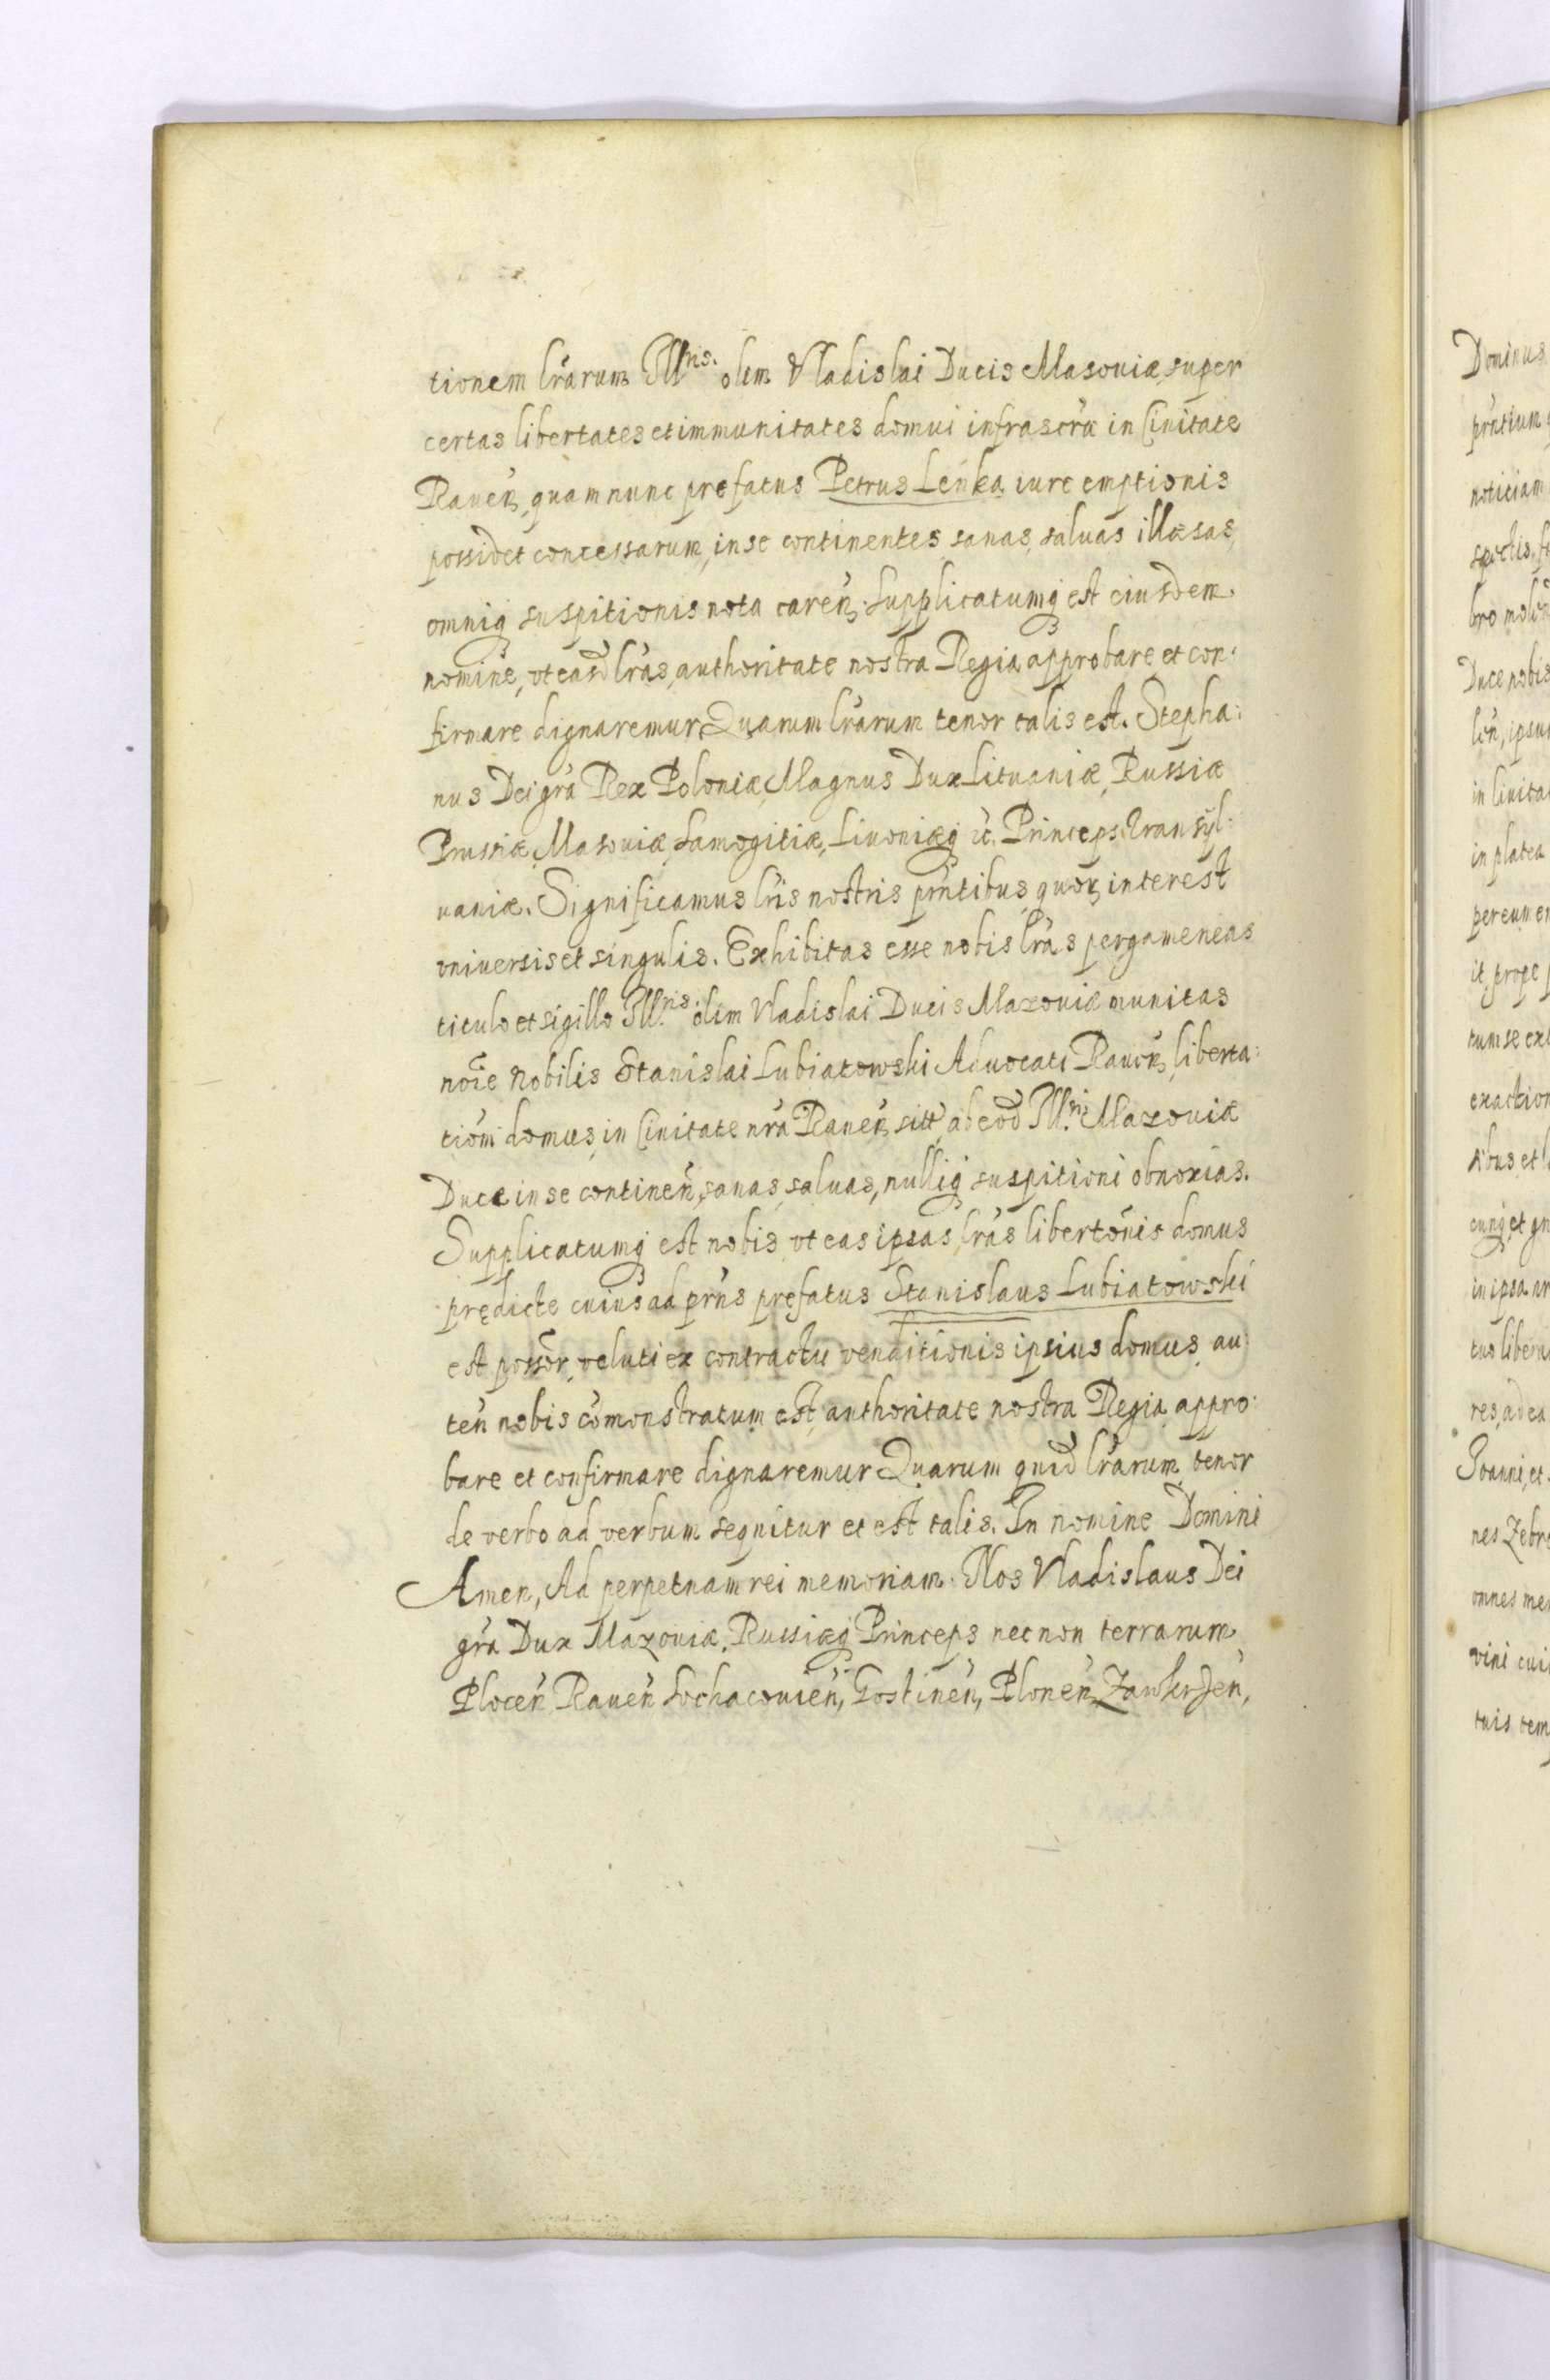 tionem lrārum Illris. olim Vladislai Ducis Masouiæ, super
certas libertates et immunitates domui infrascrā in Ciuitate
Rauen̄, quam nunc prefatus Petrus Leńka iure emptionis
possidet concessarum, in se continentes, sanas, saluas illæsas,
omniq suspitionis nota caren̄. Supplicatumq est eiusdem
nomine, vt easd̄ lrās, authoritate nostra Regia approbare et con:
firmare dignaremur, Quarum lrārum tenor talis est. Stepha:
nus Dei grā Rex Poloniæ, Magnus Dux Lituaniæ, Russiæ
Prussiæ, Masouiæ, Samogitiæ, Liuoniæq ec̄. Princeps Transyl:
uaniæ. Significamus lrīs nostris prn̄tibus, quor, interest
vniuersis et singulis. Exhibitas esse nobis lrās pergameneas
titulo et sigillo Ill.ris olim Vladislai Ducis Mazouiæ munitas
noīe Nobilis Stanislai Lubiatowski Aduocati Rauen̄, liberta:
tiōm domus, in Ciuitate nrā Rauen̄, sitt, ab eod̄ Ill.ri Mazouiæ
Duce in se continen̄, sanas, saluas, nulliq suspitioni obnoxias.
Supplicatumq est nobis, vt eas ipsas, lrās libertōnis domus
prędicte cuius ad prn̄s prefatus Stanislaus Lubiatowski
est possōr, veluti ex contractu venditionis ipsius domus, au:
ten̄ nobis cōmonstratum est, authoritate nostra Regia, appro:
bare et confirmare dignaremur Quarum quid̄ lrārum, tenor
de verbo ad verbum sequitur et est talis. In nomine Domini
Amen, Ad perpetuam rei memoriam. Nos Vladislaus Dei
grā Dux Mazouiæ, Russiæq Princeps nec non terrarum
Plocen̄ Rauen̄ Sochacouien̄, Gostinen̄, Plonen̄, Zawkrzen̄,